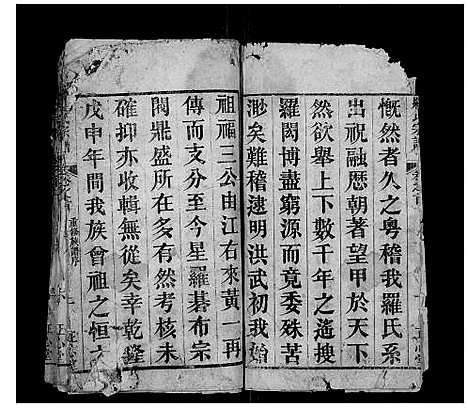 慨然者久之粵稽我羅氏系
出祝融歷朝著望甲於天下
然欲舉上下數千年之遺搜
羅閎博盡窮源而竟委殊苦
渺矣難稽逮明洪武初我始
祖福三公由江右來黃一再
傳而支分至今星羅碁布宗
閥鼎盛所在多有然考核未
確抑亦收輯無從矣幸乾隆
戊申年間我族會祖之恒
重修族譜序